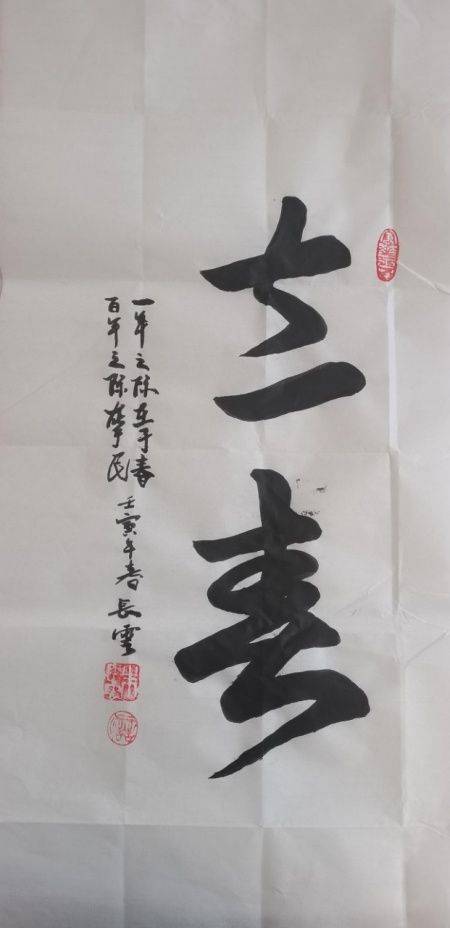 立春
一年之际在于春
百年之际在于民 壬寅年春 長雲